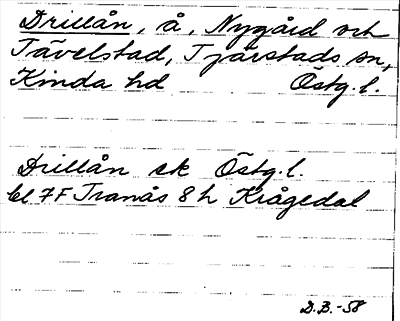 Drillån, å, Nygård och
Tävelstad, Tjärstads sn,
Kinda hd Östg. l.
Drillån ek Östg. l.
bl 7F Tranås 8h Krågedal
D.B.-58